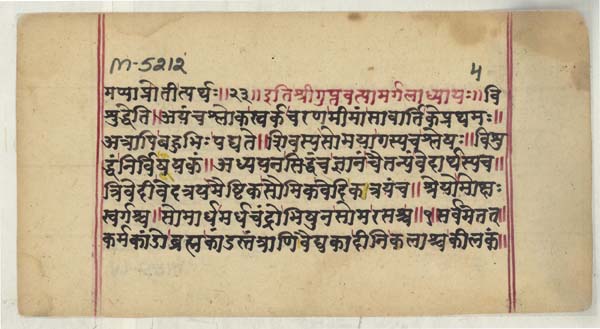 M-5212
५
मप्याप्नोतीत्यर्थः॥२३॥इतिश्रीगुप्तवत्यामर्गलाध्यायः॥वि
शुद्धेति॥अयंचश्लोकखर्कचरणमीमांसावार्तिकेप्रथमः॥
अत्रापिबहुभिःपद्यते॥शिवस्यसोमयागस्यचश्लेषः॥विशु
द्धंनिर्विषयकं॥अध्ययनसिद्धंचज्ञानंचैतन्यंवेदार्थस्यच
त्रिवेदीवेदत्रयमैष्टिकसौमिकवेदिकात्रयंच॥श्रेयोमोक्षः
स्वर्गश्च॥सोमार्धमर्धचंद्रोभिषुनसोमरसश्च॥१सर्वमेतत
कर्मकांडोब्रह्मकांडस्तंत्राणिवैद्यकादीनिकलाश्चकीलकं॥